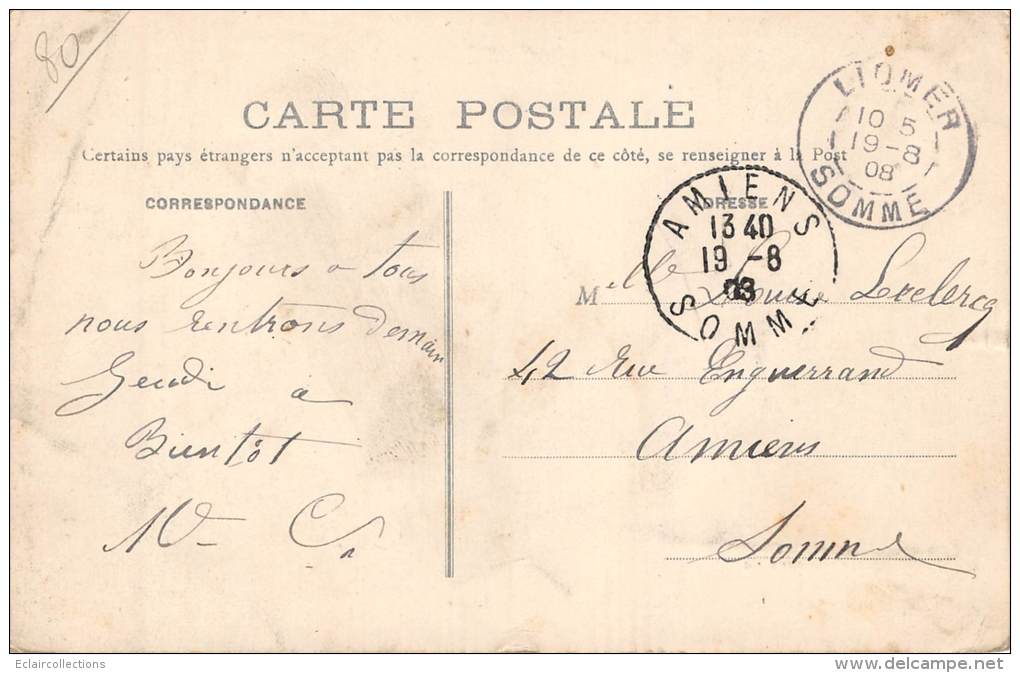 80
CARTE POSTALE
Certains pays étrangers n'acceptent pas la correspondance de ce côté, se renseigner à la Post
LIOMER
10 5
19-8
08
SOMME
CORRESPONDANCE
ADRESSE
AMIENS
13 40
19 -8
08
SOMME
Bonjours a tous
nous rentrons demain
Jeudi a
Bientôt
Melle Louise Leclercq
42 rue Enguerrand
Amiens
Somme
Eclaircollections
delcampe.net